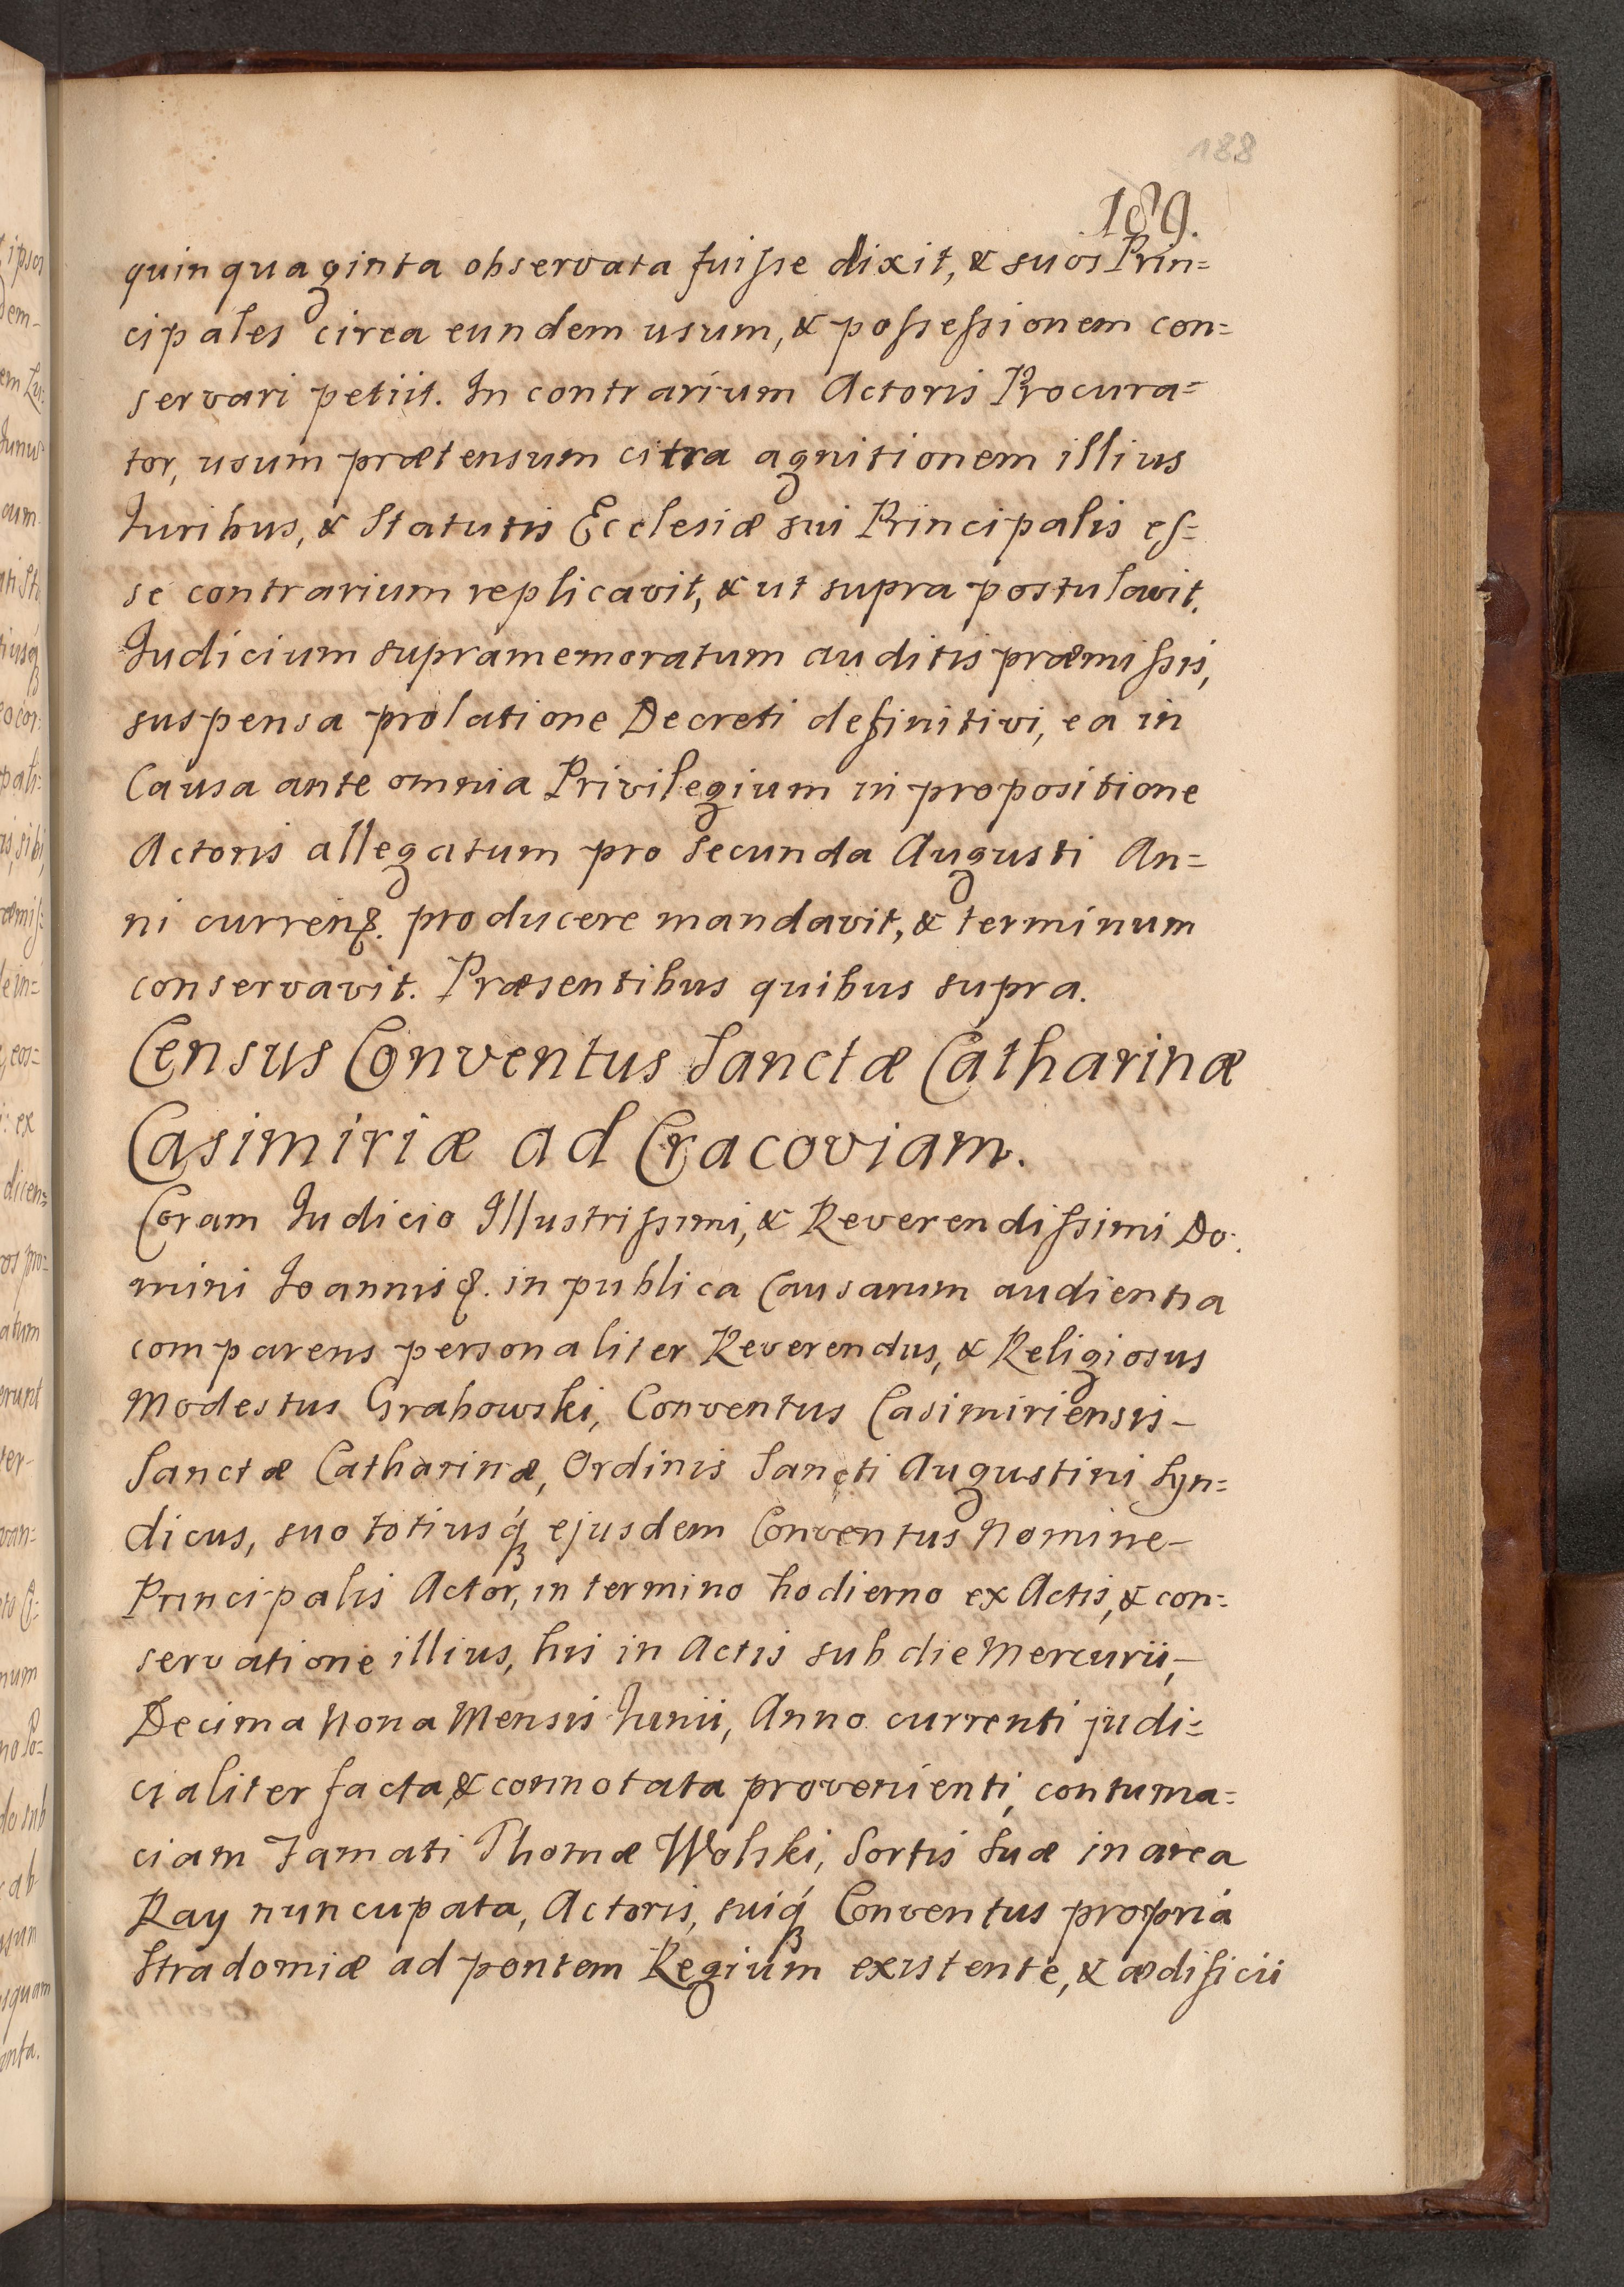 188
189.
quinquaginta observata fuisse dixit, & suos Prin=
cipales circa eundem usum, & possessionem con=
servari petiit. In contrarium Actoris Procura=
tor, usum prætensum citra agnitionem illius
Juribus, & Statutis Ecclesiæ sui Principalis es=
se contrarium replicavit, & ut supra postulavit.
Judicium supramemoratum auditis præmissis,
suspensa prolatione Decreti definitivi, ea in
Causa ante omnia Privilegium in propositione
Actoris allegatum pro Secunda Augusti An=
ni curren&. producere mandavit, & terminum
conservavit. Præsentibus quibus supra.
Census Conventus Sanctæ Catharinæ
Casimiriæ ad Cracoviam.
Coram Judicio Illustrissimi, & Reverendissimi Do.
mini Joannis &. in publica Causarum audientia
comparens personaliter Reverendus, & Religiosus
Modestus Grabowski, Conventus Casimiriensis–
Sanctæ Catharinæ, Ordinis Sancti Augustini Syn=
dicus, suo totiusq́ꝫ ejusdem Conventus Nomine–
Principalis Actor, in termino hodierno ex Actis, & con=
servatione illius, his in Actis sub die Mercurii,–
Decima Nona Mensis Junii, Anno currenti judi=
cialiter facta, & connotata provenienti, contuma=
ciam Famati Thomæ Wolski, Sortis Suæ in area
Ray nuncupata, Actoris, suiq́ꝫ Conventus propria
Stradomiæ ad pontem Regium existente, & ædificii